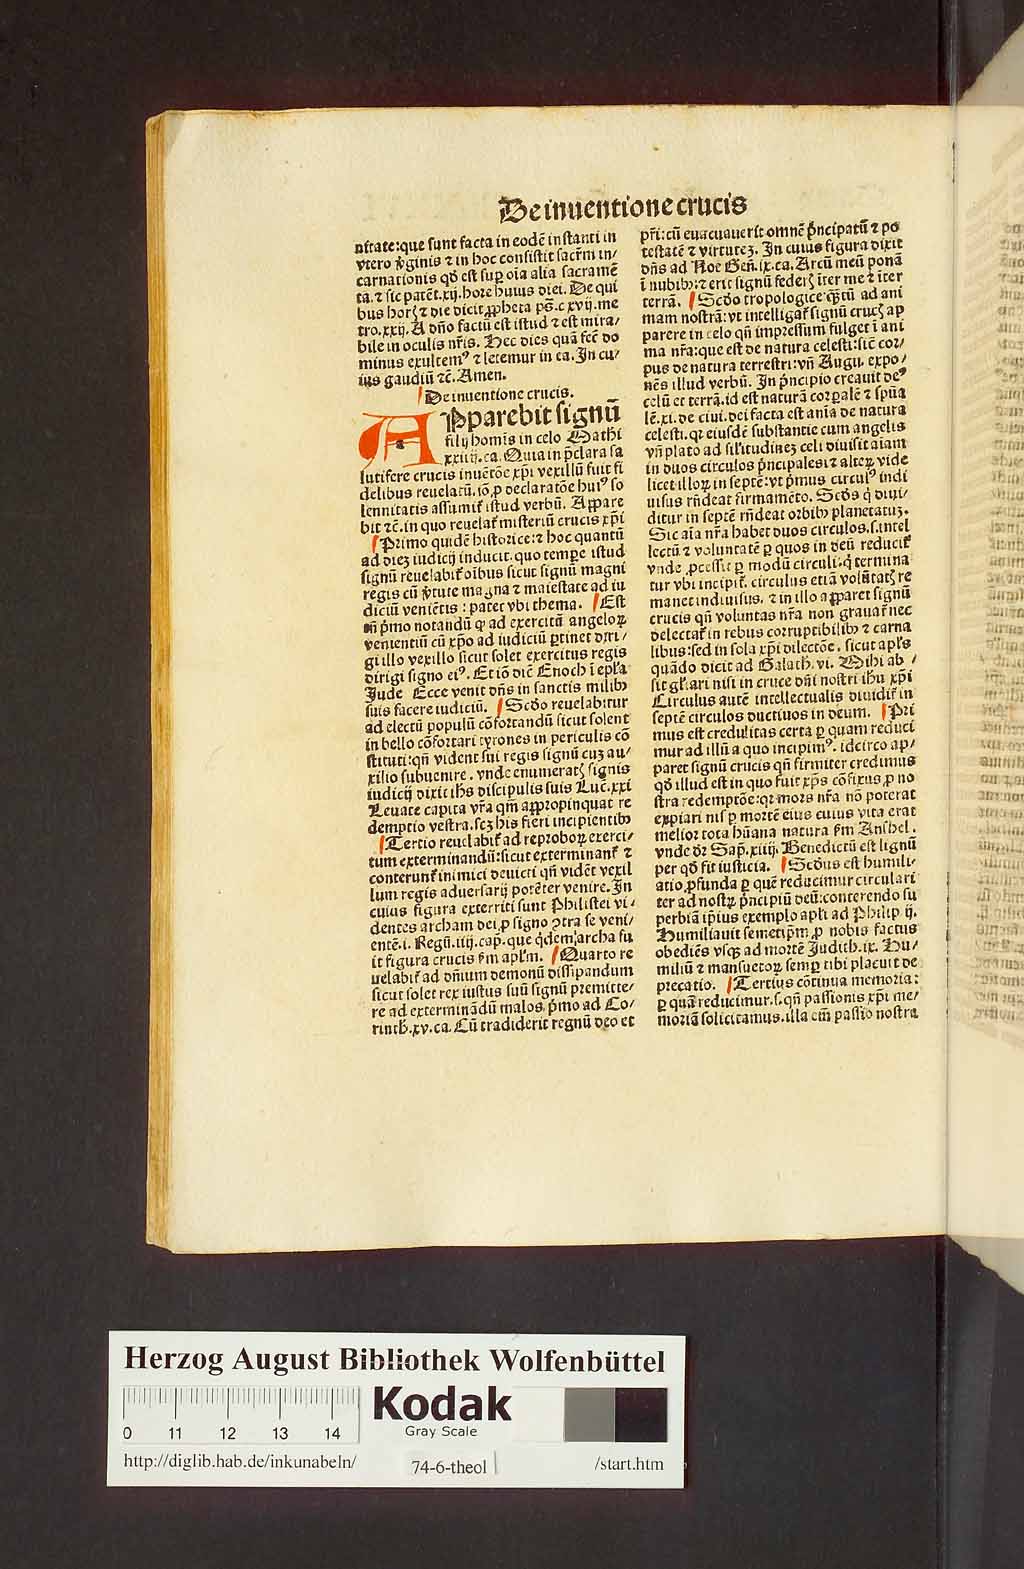 De inuentione crucis
nitate: que sunt facta in eodē instanti in
vtero v̄ginis ⁊ in hoc consistit sacrm̄ in/
carnationis qd̄ est sup oīa alia sacramē
ta. ⁊ sic patēt. xij. hore huius diei. De qui
bus horꝭ ⁊ die dicit ꝓpheta ps̄. c xvij. me
tro. xxij. A dn̄o factū est istud ⁊ est mira/
bile in oculis nr̄is. Hec dies quā fec̄ do
minus exultemꝰ ⁊ letemur in ea. In cu/
ius gaudiū ⁊c̄. Amen.
De inuentione crucis.
APparebit signū
filij homīs in celo Mathi
xxiiij. ca. Quia in p̄clara sa
lutifere crucis inuētōe xp̄i vexillū fuit fi
delibus reuelatū. iō ꝓ declaratōe huiꝰ so
lennitatis assumit̄ istud verbū. Appare
bit ⁊c̄. in quo reuelat̄ misteriū crucis xp̄i
Primo quidē historice: ⁊ hoc quantū
ad diez iudicij inducit. quo tempe istud
signū reuelabit̄ oībus sicut signū magni
regis cū v̄tute magna ⁊ maiestate ad iu
diciū veniētis: patet vbi thema. Est
n̄ p̄mo notandū ꝙ ad exercitū angeloꝝ
venientiū cū xp̄o ad iudiciū ꝑtinet diri/
gi illo vexillo sicut solet exercitus regis
dirigi signo eiꝰ. Et iō dic̄ Enoch ī ep̄la
Jude Ecce venit dn̄s in sanctis milibꝰ
suis facere iudiciū. Scd̄o reuelabitur
ad electū populū cōfortandū sicut solent
in bello cōfortari tyrones in periculis cō
stituti: qn̄ vident sui regis signū cuz au/
xilio subuenire. vnde enumeratꝭ signis
iudicij dixit ih̄s discipulis suis Luc̄. xxi
Leuate capita vr̄a qm̄ appropinquat re
demptio vestra. scz his fieri incipientibꝰ
Tertio reuelabit̄ ad reproboꝝ exerci/
tum exterminandū: sicut exterminant̄ ⁊
conterunt̄ inimici deuicti qn̄ vidēt vexil
lum regis aduersarij potēter venire. In
cuius figura exterriti sunt Philistei vi/
dentes archam dei ꝓ signo ꝯtra se veni/
entē. i. Regū. iiij. cap. que q̄dem archa fu
it figura crucis s̄m apl̄m. Quarto re
uelabit̄ ad om̄ium demonū dissipandum
sicut solet rex iustus suū signū premitte/
re ad exterminādū malos. p̄mo ad Co/
rinth. xv. ca. Cū tradiderit regnū deo et
pr̄i: cū euacuauerit omnē p̄ncipatū ⁊ po
testatē ⁊ virtutez. In cuius figura dixit
dn̄s ad Noe Gen̄. ix. ca. Arcū meū ponā
ī nubibꝰ: ⁊ erit signū federꝭ īter me ⁊ īter
terrā. Scd̄o tropologice q̄ꝫtū ad ani
mam nostrā: vt intelligat̄ signū crucꝭ ap
parere in celo qn̄ impressum fulget ī ani
ma nr̄a: que est de natura celesti: sic̄ cor/
pus de natura terrestri: vn̄ Augu. expo/
nēs illud verbū. In p̄ncipio creauit deꝰ
celū et terrā. id est naturā corꝑalē ⁊ sp̄ua
lē. xi. de ciui. dei facta est anīa de natura
celesti. qz eiusdē substantie cum angelis
vn̄ plato ad sil̄itudinez celi diuisit aīam
in duos circulos p̄ncipales: ⁊ alteꝝ vide
licet illoꝝ in septē: vt p̄mus circulꝰ indi
uisus rn̄deat firmamēto. Scd̄s q̄ diui/
ditur in septē rn̄deat orbibꝰ planetatuꝫ.
Sic aīa nr̄a habet duos circulos. s. intel
lectū ⁊ voluntatē ꝑ quos in deū reducit̄
vnde ꝓcessit ꝑ modū circuli: q̄ termina
tur vbi incipit̄. circulus etiā volūtatꝭ re
manet indiuisus. ⁊ in illo apparet signū
crucis qn̄ voluntas nr̄a non grauat̄ nec
delectat̄ in rebus corruptibilibꝰ ⁊ carna
libus: sed in sola xp̄i dilectōe. sicut apl̄s
quādo dicit ad Galath. vi. Mihi ab/
sit gl̄iari nisi in cruce dn̄i nostri ih̄u xp̄i
Circulus autē intellectualis diuidit̄ in
septē circulos ductiuos in deum. Pri
mus est credulitas certa ꝑ quam reduci
mur ad illū a quo incipimꝰ. idcirco ap/
paret signū crucis qn̄ firmiter credimus
qd̄ illud est in quo fuit xp̄s cōfixus ꝓ no
stra redemptōe: qz mors nr̄a nō poterat
expiari nisi ꝑ mortē eius cuius vita erat
melior tota hūana natura s̄m Anshel.
vnde dr̄ Sap̄. xiiij. Benedictū est lignū
per qd̄ fit iusticia. Scd̄us est humili/
atio ꝓfunda ꝑ quē reducimur circulari
ter ad nostꝝ p̄ncipiū deū: conterendo su
perbiā ip̄ius exemplo apl̄i ad Philip ij.
Humiliauit semetip̄m ꝓ nobis factus
obediēs vsqꝫ ad mortē Judith. ix. Hu/
miliū ⁊ mansuetoꝝ semꝑ tibi placuit de
precatio. Tertius cōtinua memoria:
ꝑ quā reducimur. s. qn̄ passionis xp̄i me/
moriā solicitamus. illa eni̅ passio nostra
Herzog August Bibliothek Wolfenbüttel
Kodak
Gray Scale
0 11 12 13 14
http://diglib.hab.de/inkunabeln/ 74-6-theol /start.htm